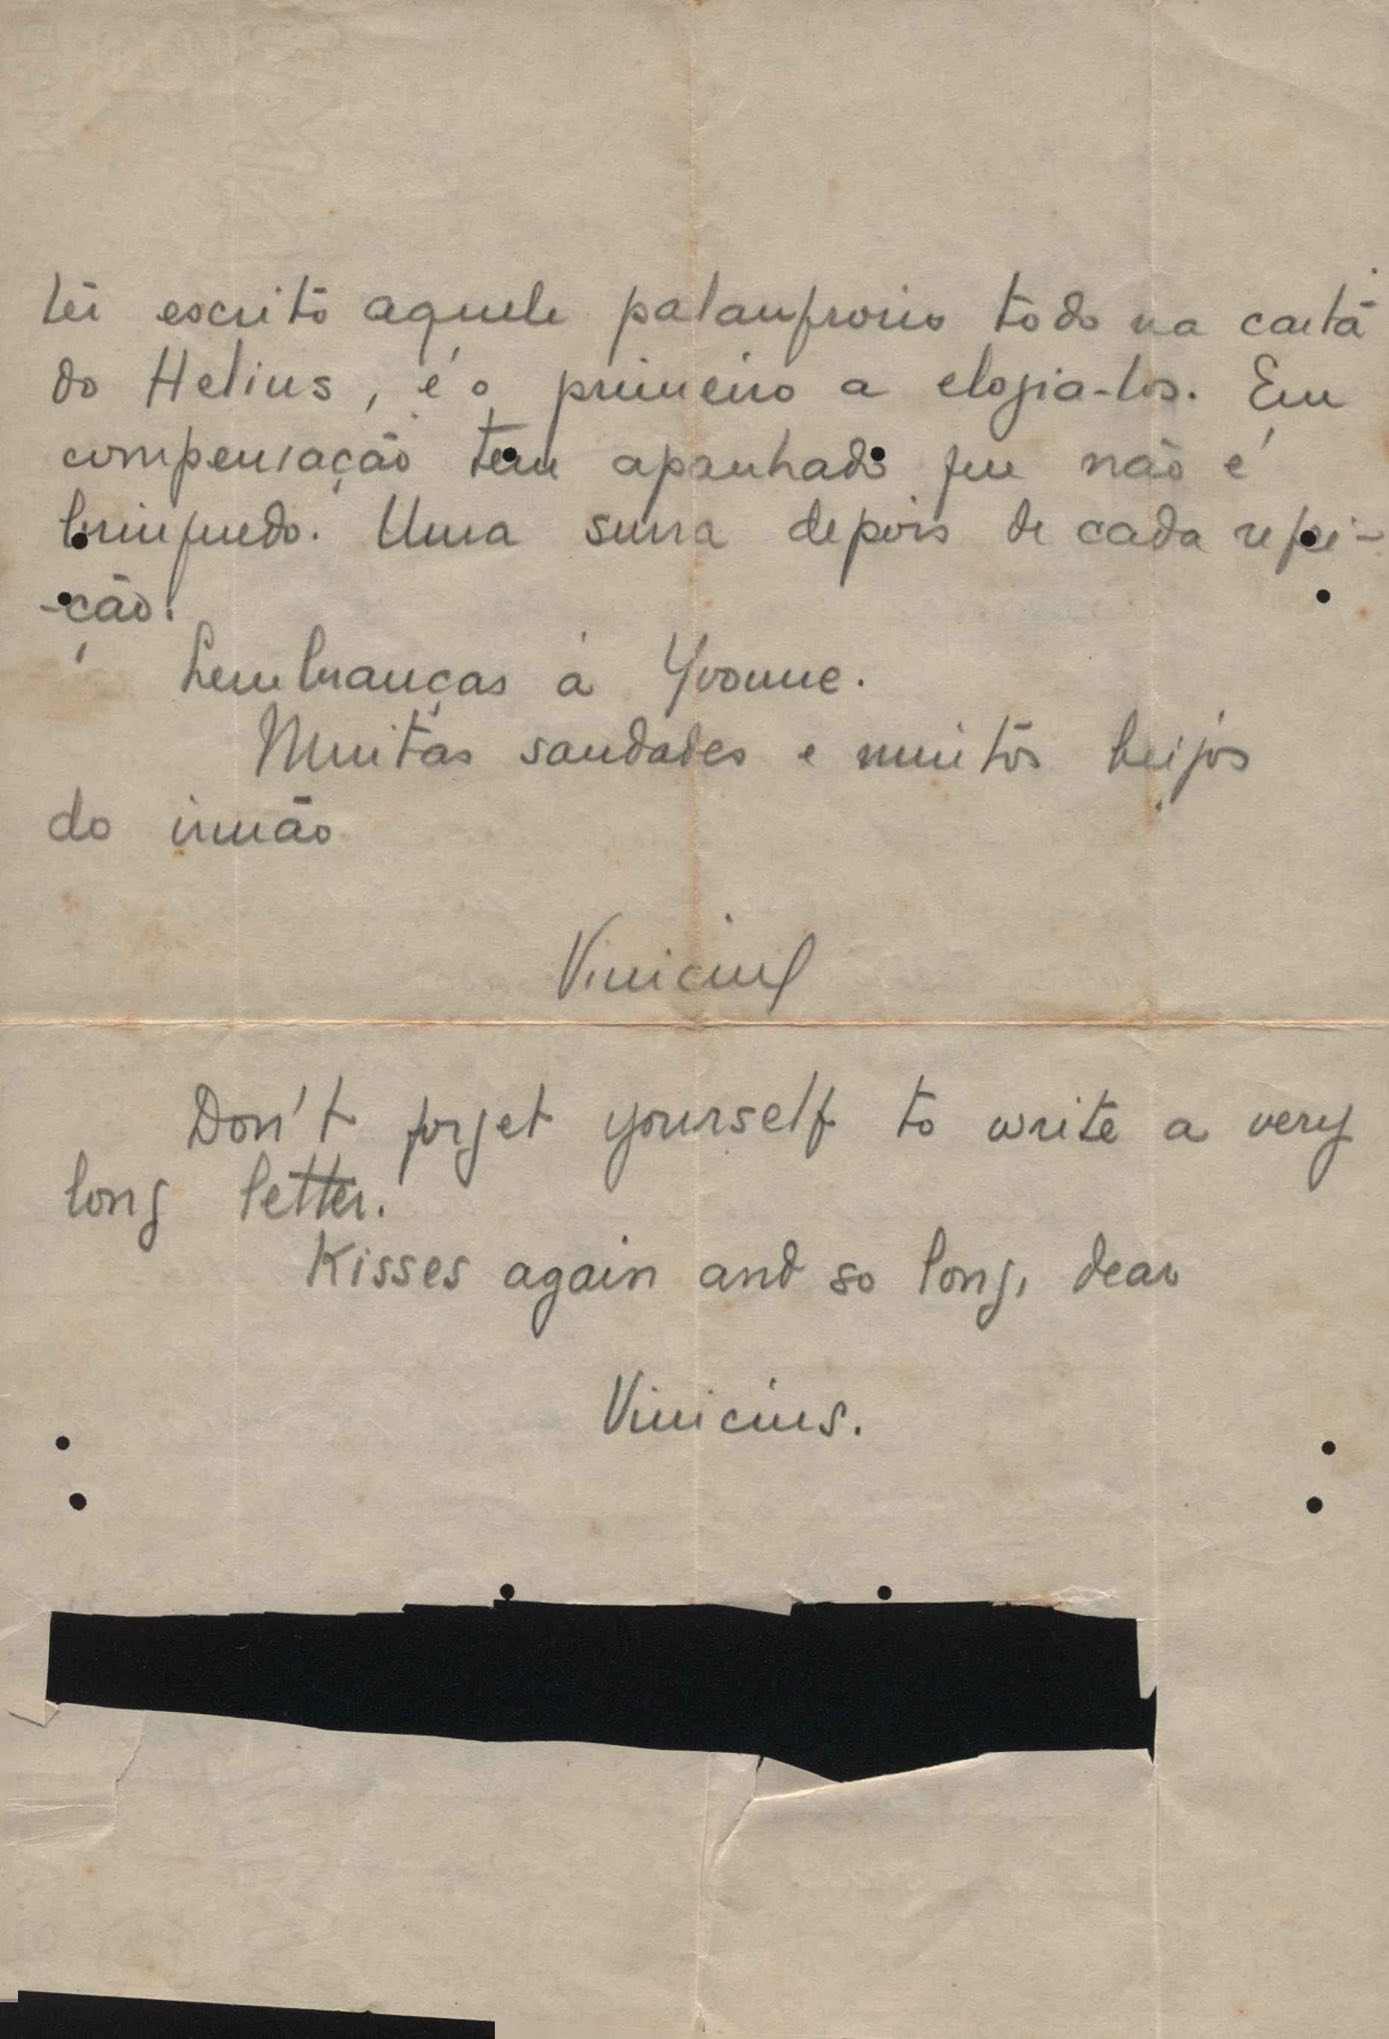 ter escrito aquele palanfrorio todo na carta
do Helius, é o primeiro a elogia-los. Em
compensação tem apanhado que não é
brinquedo. Uma surra depois de cada refei-
-ção.
Lembranças à Yvonne.
Muitas saudades e muitos beijos
do irmão
Vinicius
Don't forget yourself to write a very
long letter.
Kisses again and so long, dear
Vinicius.